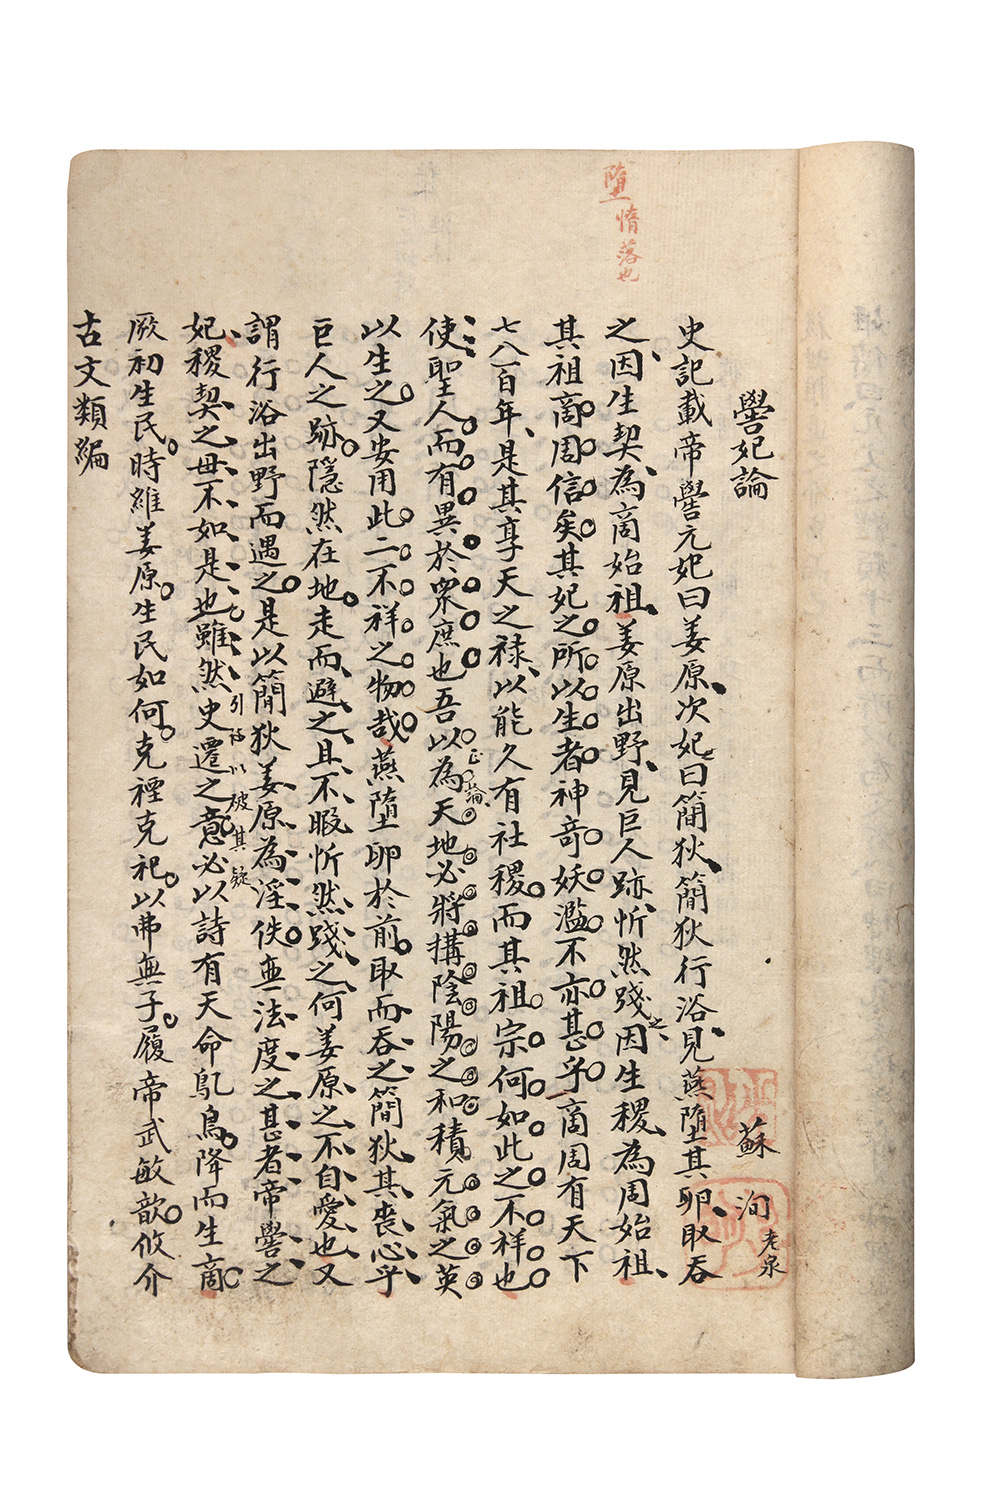 墮惰落也
嚳妃論
蘇洵老泉
史記載帝嚳元妃曰姜原次妃曰簡狄簡狄行浴見燕墮其卵取吞
之因生契為商始祖姜原出野見巨人跡忻然踐之因生稷為周始祖
其祖商周信矣其妃之所以生者神奇妖濫不亦甚乎商周有天下
七八百年是其享天之祿以能久有社稷而其祖宗何如此之不祥也
使聖人而有異於衆庶也吾以為天地必將搆陰陽之和積元氣之英
正論
以生之又安用此二不祥之物哉燕墮卵於前取而吞之簡狄其喪心乎
巨人之跡隱然在地走而避之且不暇忻然踐之何姜原之不自愛也又
謂行浴出野而遇之是以簡狄姜原為淫佚無法度之甚者帝嚳之
妃稷契之母不如是也雖然史遷之意必以詩有天命鳦鳥降而生商
引詩以破其疑
厥初生民時維姜原生民如何克禋克祀以弗無子履帝武敏歆攸介
古文類編